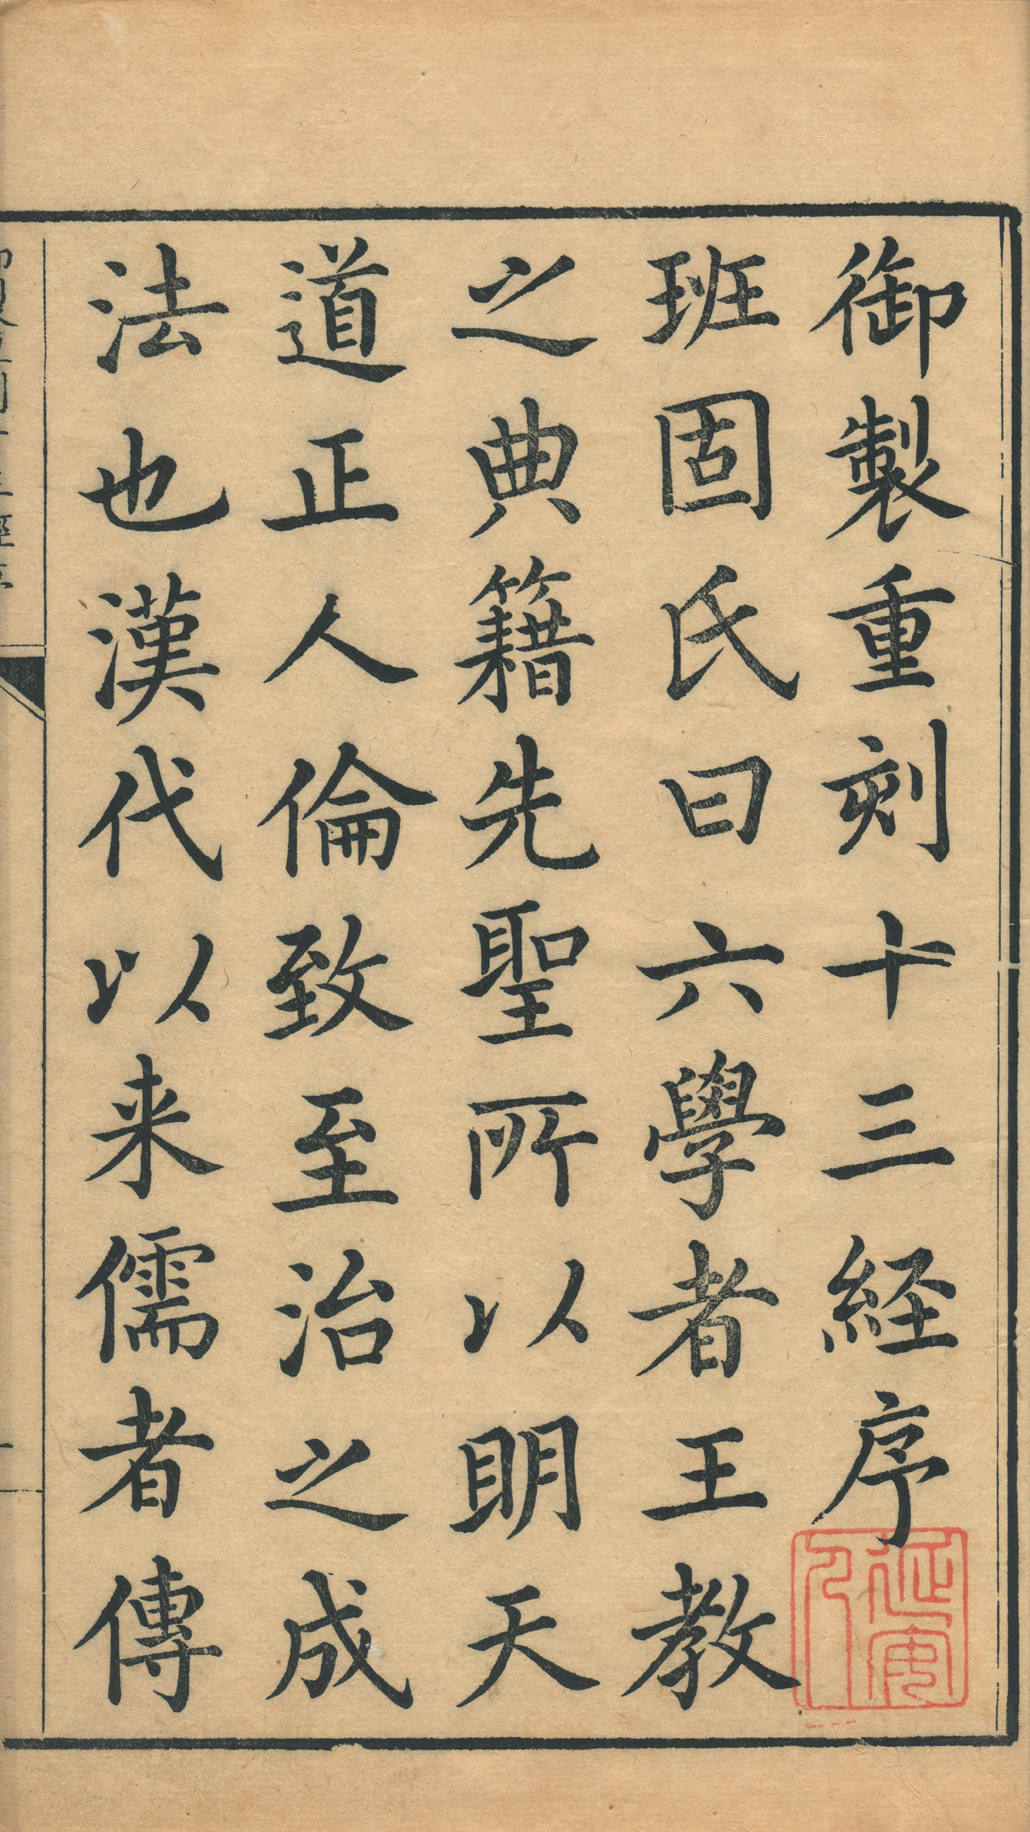 御製重刻十三経序
班固氏曰六學者王教
之典籍先聖所以明天
道正人倫致至治之成
法也漢代以来儒者傳